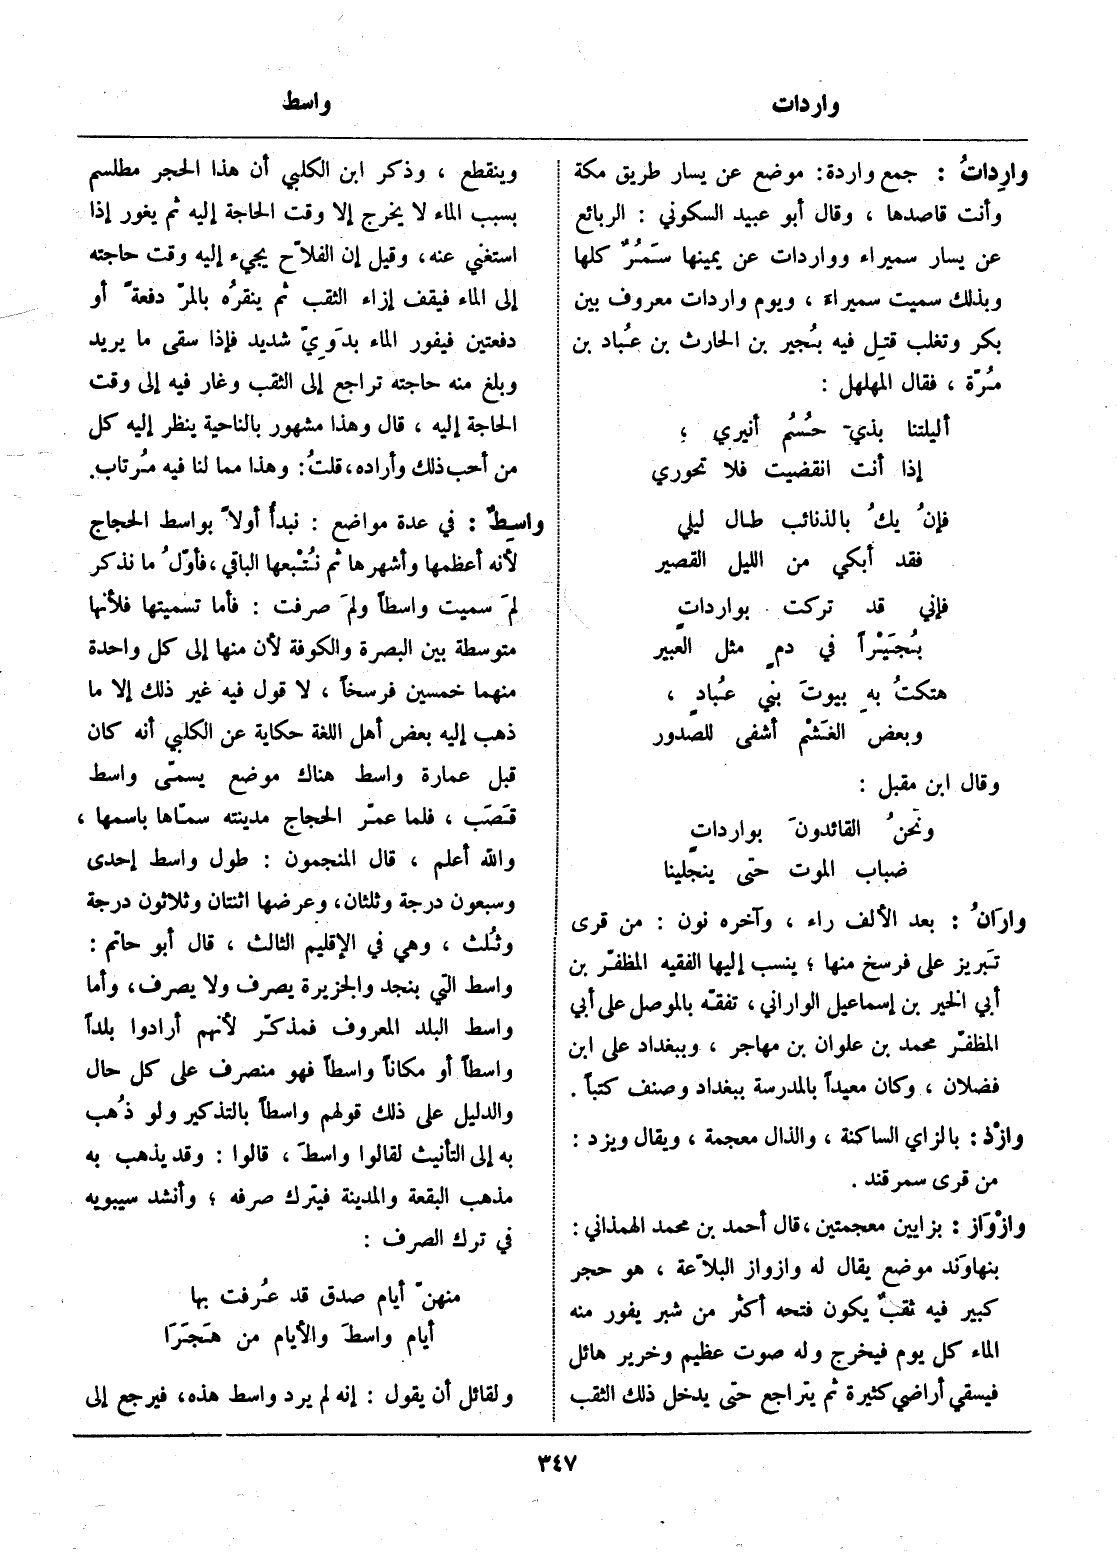 واردات
واسط
وارِداتُ : جمع واردة: موضع عن يسار طريق مكة
وأنت قاصدها ، وقال أبو عبيد السكوني : الربائع
عن يسار سميراء وواردات عن يمينها سَمُرٌ كلها
وبذلك سميت سميراء ، ويوم واردات معروف بين
بكر وتغلب قتِل فيه بُجير بن الحارث بن عُباد بن
مُرّة ، فقال المهلهل :
أليلتنا بذي حُسُم أنيري ؛
إذا أنت انقضيت فلا تحوري
فإنْ يكُ بالذنائب طال ليلي
فقد أبكي من الليل القصير
فإني قد تركت بوارداتٍ
بُجَيْراً في دمٍ مثل العبير
هتكتُ به بيوتَ بني عُبادٍ ،
وبعض الغَشْم أشفى للصدور
وقال ابن مقبل :
ونحنُ القائدونَ بوارداتٍ
ضباب الموت حتى ينجلينا
وارَانُ : بعد الألف راء ، وآخره نون : من قرى
تبريز على فرسخ منها ؛ ينسب إليها الفقيه المظفّر بن
أبي الخير بن إسماعيل الواراني ، تفقّه بالموصل على أبي
المظفّر محمد بن علوان بن مهاجر ، وببغداد على ابن
فضلان ، وكان معيداً بالمدرسة ببغداد وصنف كتباً .
وازْذ : بالزاي الساكنة ، والذال معجمة ، ويقال ويزد :
من قرى سمرقند .
وازْوَاز : بزايين معجمتين ، قال أحمد بن محمد الهمذاني :
بنهاوَند موضع يقال له وازواز البلاّعة ، هو حجر
كبير فيه ثقبٌ يكون فتحه أكثر من شبر يفور منه
الماء كل يوم فيخرج وله صوت عظيم وخرير هائل
فيسقي أراضي كثيرة ثم يتراجع حتى يدخل ذلك الثقب
وينقطع ، وذكر ابن الكلبي أن هذا الحجر مطلسم
بسبب الماء لا يخرج إلا وقت الحاجة إليه ثم يغور إذا
استغني عنه، وقيل إن الفلاّح يجيء إليه وقت حاجته
إلى الماء فيقف إزاء الثقب ثم ينقرُه بالمرّ دفعةً أو
دفعتين فيفور الماء بدَوِيّ شديد فإذا سقى ما يريد
وبلغ منه حاجته تراجع إلى الثقب وغار فيه إلى وقت
الحاجة إليه ، قال وهذا مشهور بالناحية ينظر إليه كل
من أحب ذلك وأراده، قلتُ: وهذا مما لنا فيه مُرتاب.
واسِطٌ : في عدة مواضع : نبدأُ أولاً بواسط الحجاج
لأنه أعظمها وأشهرها ثم نُتْبعها الباقي ، فأوّلُ ما نذكر
لمَ سميت واسطاً ولمَ صرفت : فأما تسميتها فلأنها
متوسطة بين البصرة والكوفة لأن منها إلى كل واحدة
منهما خمسين فرسخاً ، لا قول فيه غير ذلك إلا ما
ذهب إليه بعض أهل اللغة حكاية عن الكلبي أنه كان
قبل عمارة واسط هناك موضع يسمّى واسط
قَصَب ، فلما عمّر الحجاج مدينته سمّاها باسمها ،
والله أعلم ، قال المنجمون : طول واسط إحدى
وسبعون درجة وثلثان، وعرضها اثنتان وثلاثون درجة
وثُلث ، وهي في الإقليم الثالث ، قال أبو حاتم :
واسط التي بنجد والجزيرة يصرف ولا يصرف، وأما
واسط البلد المعروف فمذكّر لأنهم أرادوا بلداً
واسطاً أو مكاناً واسطاً فهو منصرف على كل حال
والدليل على ذلك قولهم واسطاً بالتذكير ولو ذُهب
به إلى التأنيث لقالوا واسطَ ، قالوا : وقد يذهب به
مذهب البقعة والمدينة فيترك صرفه ؛ وأنشد سيبويه
في ترك الصرف :
منهنّ أيام صدق قد عُرفت بها
أيام واسطَ والأيام من هَجَرَا
ولقائل أن يقول : إنه لم يرد واسط هذه، فيرجع إلى
٣٤٧